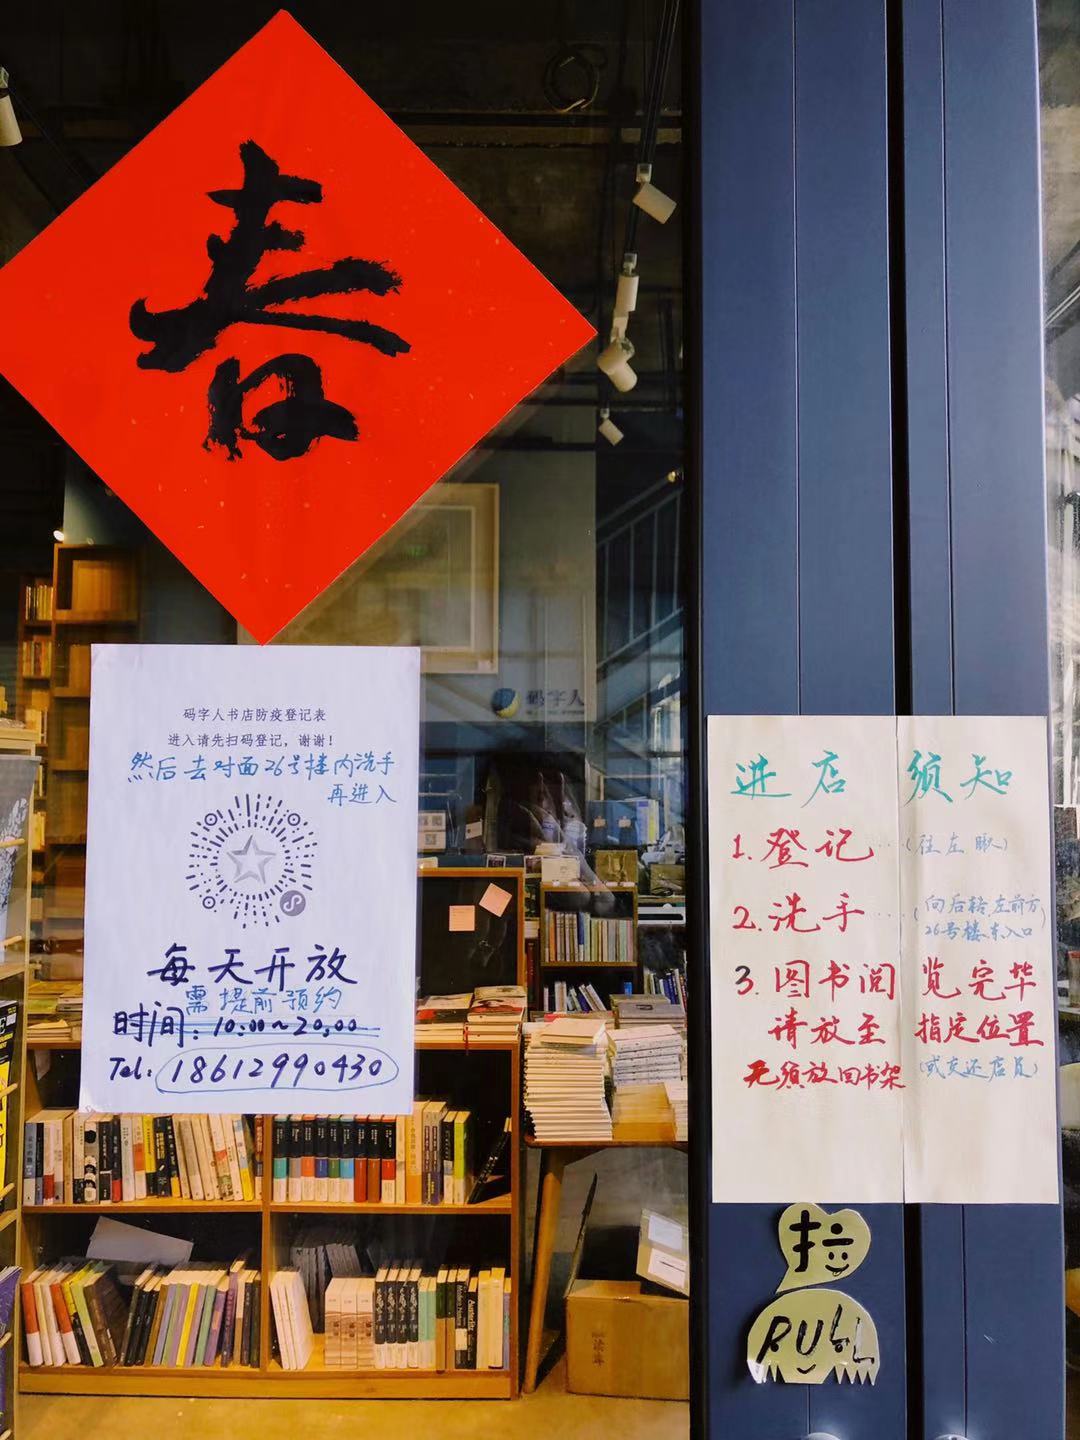 春
码字人
码字人书店防疫登记表
进入请先扫码登记，谢谢！
然后去对面26号楼内洗手
再进入
每天开放
需提前预约
时间：10:00~20:00
Tel: 18612990430
进店须知
1. 登记···(往左瞅)
2. 洗手···(向后转,左前方,
26号楼东入口)
3. 图书阅览完毕
请放至指定位置
无须放回书架(或交还店员)
拉
PULL
读库